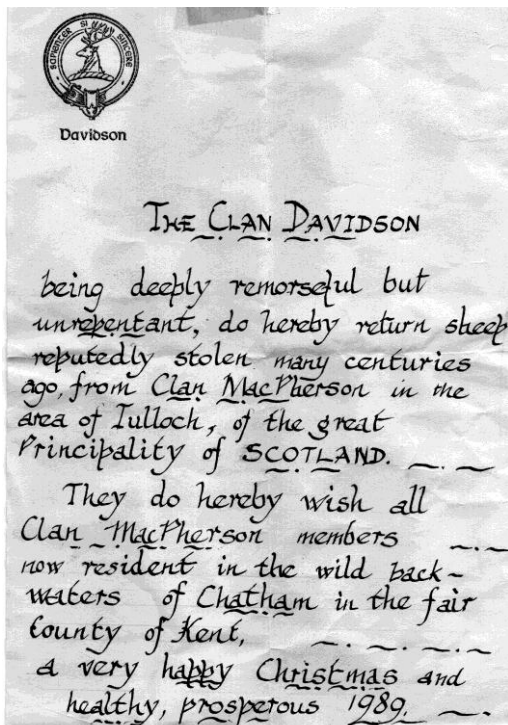 SAPIENTER SI SINCERE
Davidson
THE CLAN DAVIDSON
being deeply remorseful but
unrepentant, do hereby return sheep
reputedly stolen many centuries
ago, from Clan MacPherson in the
area of Tulloch, of the great
Principality of SCOTLAND.
They do hereby wish all
Clan MacPherson members
now resident in the wild back-
waters of Chatham in the fair
County of Kent,
a very happy Christmas and
healthy, prosperous 1989.